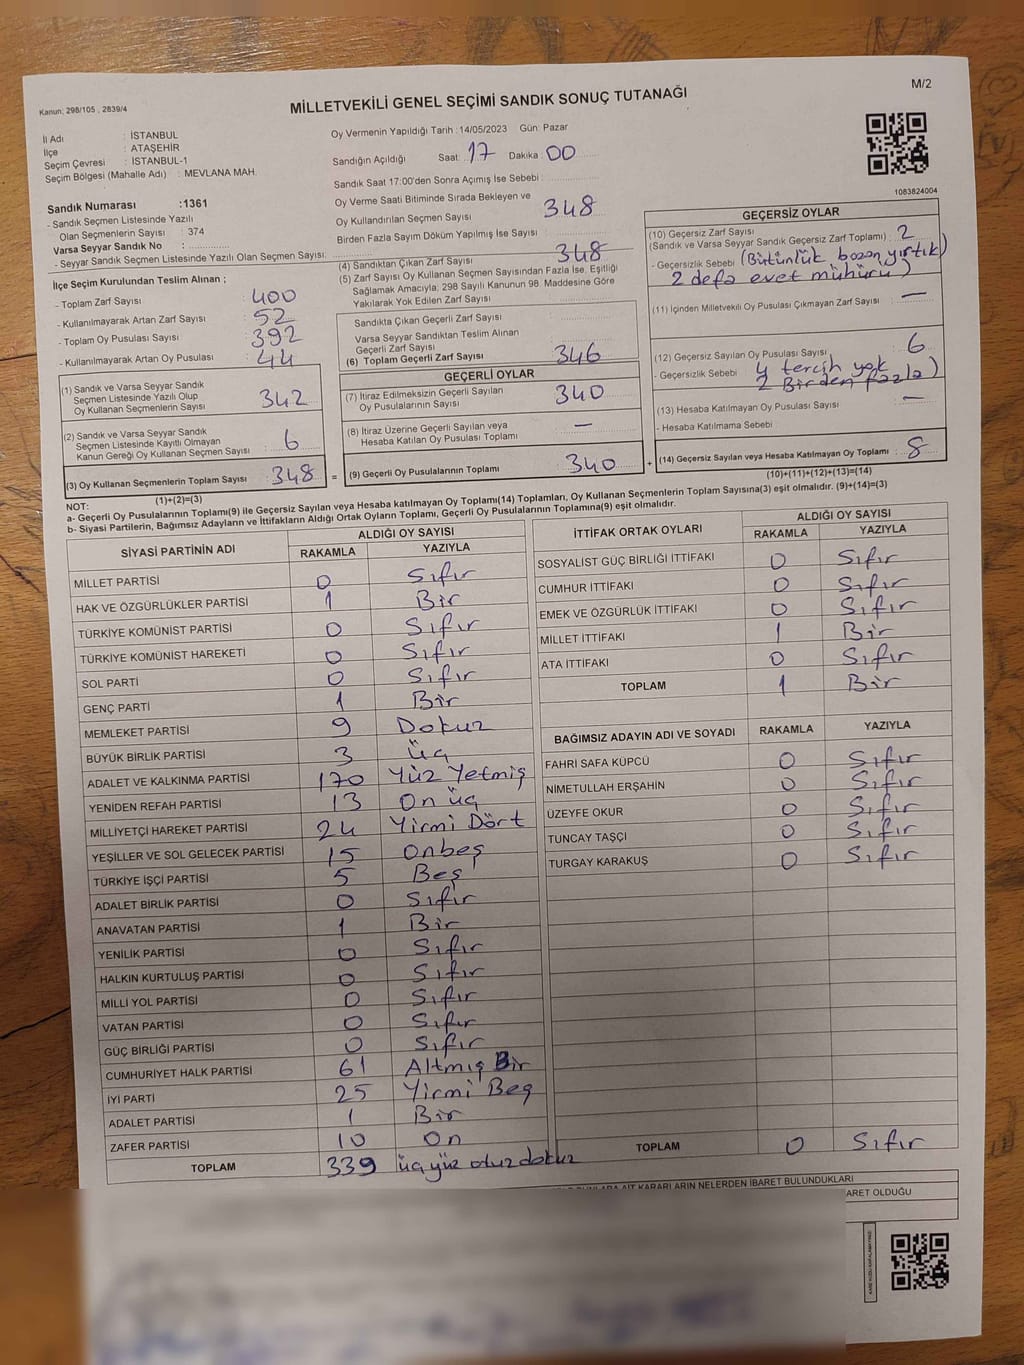 Kanun: 298/105 , 2839/4
MİLLETVEKİLİ GENEL SEÇİMİ SANDIK SONUÇ TUTANAĞI
M/2
İl Adı : İSTANBUL
İlçe : ATAŞEHİR
Seçim Çevresi : İSTANBUL-1
Seçim Bölgesi (Mahalle Adı) : MEVLANA MAH.
Oy Vermenin Yapıldığı Tarih : 14/05/2023 Gün: Pazar
Sandığın Açıldığı Saat: 17 Dakika : 00
Sandık Saat 17:00'den Sonra Açımış İse Sebebi :
Oy Verme Saati Bitiminde Sırada Bekleyen ve
Oy Kullandırılan Seçmen Sayısı 348
Birden Fazla Sayım Döküm Yapılmış İse Sayısı :
1083824004
Sandık Numarası :1361
- Sandık Seçmen Listesinde Yazılı
Olan Seçmenlerin Sayısı : 374
Varsa Seyyar Sandık No :
- Seyyar Sandık Seçmen Listesinde Yazılı Olan Seçmen Sayısı:
İlçe Seçim Kurulundan Teslim Alınan ;
- Toplam Zarf Sayısı : 400
- Kullanılmayarak Artan Zarf Sayısı : 52
- Toplam Oy Pusulası Sayısı : 392
- Kullanılmayarak Artan Oy Pusulası : 44
(1) Sandık ve Varsa Seyyar Sandık
Seçmen Listesinde Yazılı Olup
Oy Kullanan Seçmenlerin Sayısı : 342
(2) Sandık ve Varsa Seyyar Sandık
Seçmen Listesinde Kayıtlı Olmayan
Kanun Gereği Oy Kullanan Seçmen Sayısı : 6
(3) Oy Kullanan Seçmenlerin Toplam Sayısı : 348
(1)+(2)=(3)
(4) Sandıktan Çıkan Zarf Sayısı : 348
(5) Zarf Sayısı Oy Kullanan Seçmen Sayısından Fazla İse, Eşitliği
Sağlamak Amacıyla; 298 Sayılı Kanunun 98. Maddesine Göre
Yakılarak Yok Edilen Zarf Sayısı :
Sandıkta Çıkan Geçerli Zarf Sayısı :
Varsa Seyyar Sandıktan Teslim Alınan
Geçerli Zarf Sayısı :
(6) Toplam Geçerli Zarf Sayısı : 346
GEÇERLİ OYLAR
(7) İtiraz Edilmeksizin Geçerli Sayılan
Oy Pusulalarının Sayısı : 340
(8) İtiraz Üzerine Geçerli Sayılan veya
Hesaba Katılan Oy Pusulası Toplamı : —
= (9) Geçerli Oy Pusulalarının Toplamı : 340
GEÇERSİZ OYLAR
(10) Geçersiz Zarf Sayısı
(Sandık ve Varsa Seyyar Sandık Geçersiz Zarf Toplamı) : 2
- Geçersizlik Sebebi (Bütünlük bozan yırtık)
2 defa evet mühürü )
(11) İçinden Milletvekili Oy Pusulası Çıkmayan Zarf Sayısı : —
(12) Geçersiz Sayılan Oy Pusulası Sayısı : 6
- Geçersizlik Sebebi 4 tercih yok
2 Birden fazla )
(13) Hesaba Katılmayan Oy Pusulası Sayısı : —
- Hesaba Katılmama Sebebi
+ (14) Geçersiz Sayılan veya Hesaba Katılmayan Oy Toplamı : 8
(10)+(11)+(12)+(13)=(14)
NOT:
a- Geçerli Oy Pusulalarının Toplamı(9) ile Geçersiz Sayılan veya Hesaba katılmayan Oy Toplamı(14) Toplamları, Oy Kullanan Seçmenlerin Toplam Sayısına(3) eşit olmalıdır. (9)+(14)=(3)
b- Siyasi Partilerin, Bağımsız Adayların ve İttifakların Aldığı Ortak Oyların Toplamı, Geçerli Oy Pusulalarının Toplamına(9) eşit olmalıdır.
SİYASİ PARTİNİN ADI ALDIĞI OY SAYISI
RAKAMLA YAZIYLA
MİLLET PARTİSİ 0 Sıfır
HAK VE ÖZGÜRLÜKLER PARTİSİ 1 Bir
TÜRKİYE KOMÜNİST PARTİSİ 0 Sıfır
TÜRKİYE KOMÜNİST HAREKETİ 0 Sıfır
SOL PARTİ 0 Sıfır
GENÇ PARTİ 1 Bir
MEMLEKET PARTİSİ 9 Dokuz
BÜYÜK BİRLİK PARTİSİ 3 üç
ADALET VE KALKINMA PARTİSİ 170 Yüz Yetmiş
YENİDEN REFAH PARTİSİ 13 On üç
MİLLİYETÇİ HAREKET PARTİSİ 24 Yirmi Dört
YEŞİLLER VE SOL GELECEK PARTİSİ 15 Onbeş
TÜRKİYE İŞÇİ PARTİSİ 5 Beş
ADALET BİRLİK PARTİSİ 0 Sıfır
ANAVATAN PARTİSİ 1 Bir
YENİLİK PARTİSİ 0 Sıfır
HALKIN KURTULUŞ PARTİSİ 0 Sıfır
MİLLİ YOL PARTİSİ 0 Sıfır
VATAN PARTİSİ 0 Sıfır
GÜÇ BİRLİĞİ PARTİSİ 0 Sıfır
CUMHURİYET HALK PARTİSİ 61 Altmış Bir
İYİ PARTİ 25 Yirmi Beş
ADALET PARTİSİ 1 Bir
ZAFER PARTİSİ 10 On
TOPLAM 339 üçyüz otuzdokuz
İTTİFAK ORTAK OYLARI ALDIĞI OY SAYISI
RAKAMLA YAZIYLA
SOSYALİST GÜÇ BİRLİĞİ İTTİFAKI 0 Sıfır
CUMHUR İTTİFAKI 0 Sıfır
EMEK VE ÖZGÜRLÜK İTTİFAKI 0 Sıfır
MİLLET İTTİFAKI 1 Bir
ATA İTTİFAKI 0 Sıfır
TOPLAM 1 Bir
BAĞIMSIZ ADAYIN ADI VE SOYADI RAKAMLA YAZIYLA
FAHRİ SAFA KÜPCÜ 0 Sıfır
NİMETULLAH ERŞAHİN 0 Sıfır
ÜZEYFE OKUR 0 Sıfır
TUNCAY TAŞÇI 0 Sıfır
TURGAY KARAKUŞ 0 Sıfır
TOPLAM 0 Sıfır
AİT KARARLARIN NELERDEN İBARET BULUNDUKLARI
OLDUĞU